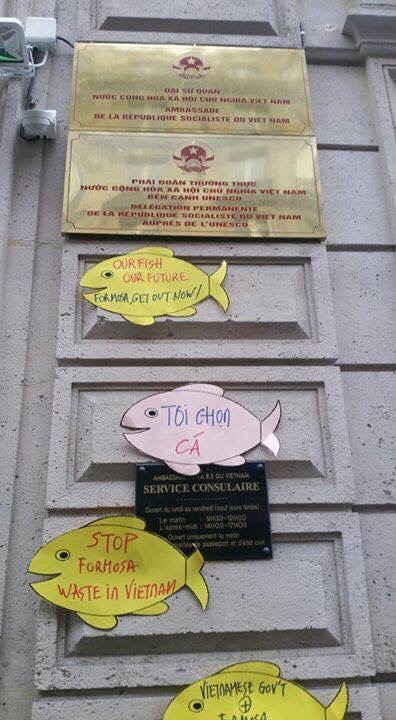 ĐẠI SỨ QUÁN
NƯỚC CỘNG HÒA XÃ HỘI CHỦ NGHĨA VIỆT NAM
AMBASSADE
DE LA RÉPUBLIQUE SOCIALISTE DU VIET NAM
PHÁI ĐOÀN THƯỜNG TRỰC
NƯỚC CỘNG HÒA XÃ HỘI CHỦ NGHĨA VIỆT NAM
BÊN CẠNH UNESCO
DÉLÉGATION PERMANENTE
DE LA RÉPUBLIQUE SOCIALISTE DU VIET NAM
AUPRÈS DE L'UNESCO
OUR FISH
OUR FUTURE
FORMOSA, GET OUT NOW!
TÔI CHỌN
CÁ
AMBASSADE LA R.S DU VIETNAM
SERVICE CONSULAIRE
Ouvert du lundi au vendredi (sauf jours fériés)
Le matin : 9H30-12H00
L'après-midi : 14H00-17H00
Ouvert uniquement le matin
de passeport et d'état civil
STOP
FORMOSA
WASTE in VIETNAM
VIETNAMESE GOV'T
+
FORMOSA